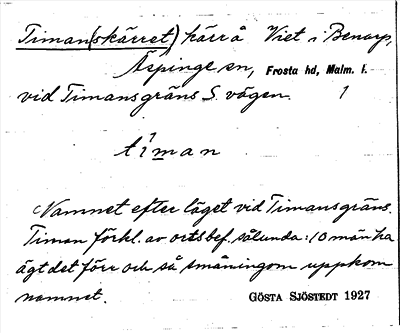 Timan(skärret) kärr å Viet i Benarp,
Äspinge sn, Frosta hd, Malm. l.
vid Timansgräns S. vägen. 1
tíman
Namnet efter läget vid Timansgräns.
Timan förkl. av ortsbef. sålunda: 10 män ha
ägt det förr och så småningom uppkom
namnet. GÖSTA SJÖSTEDT 1927